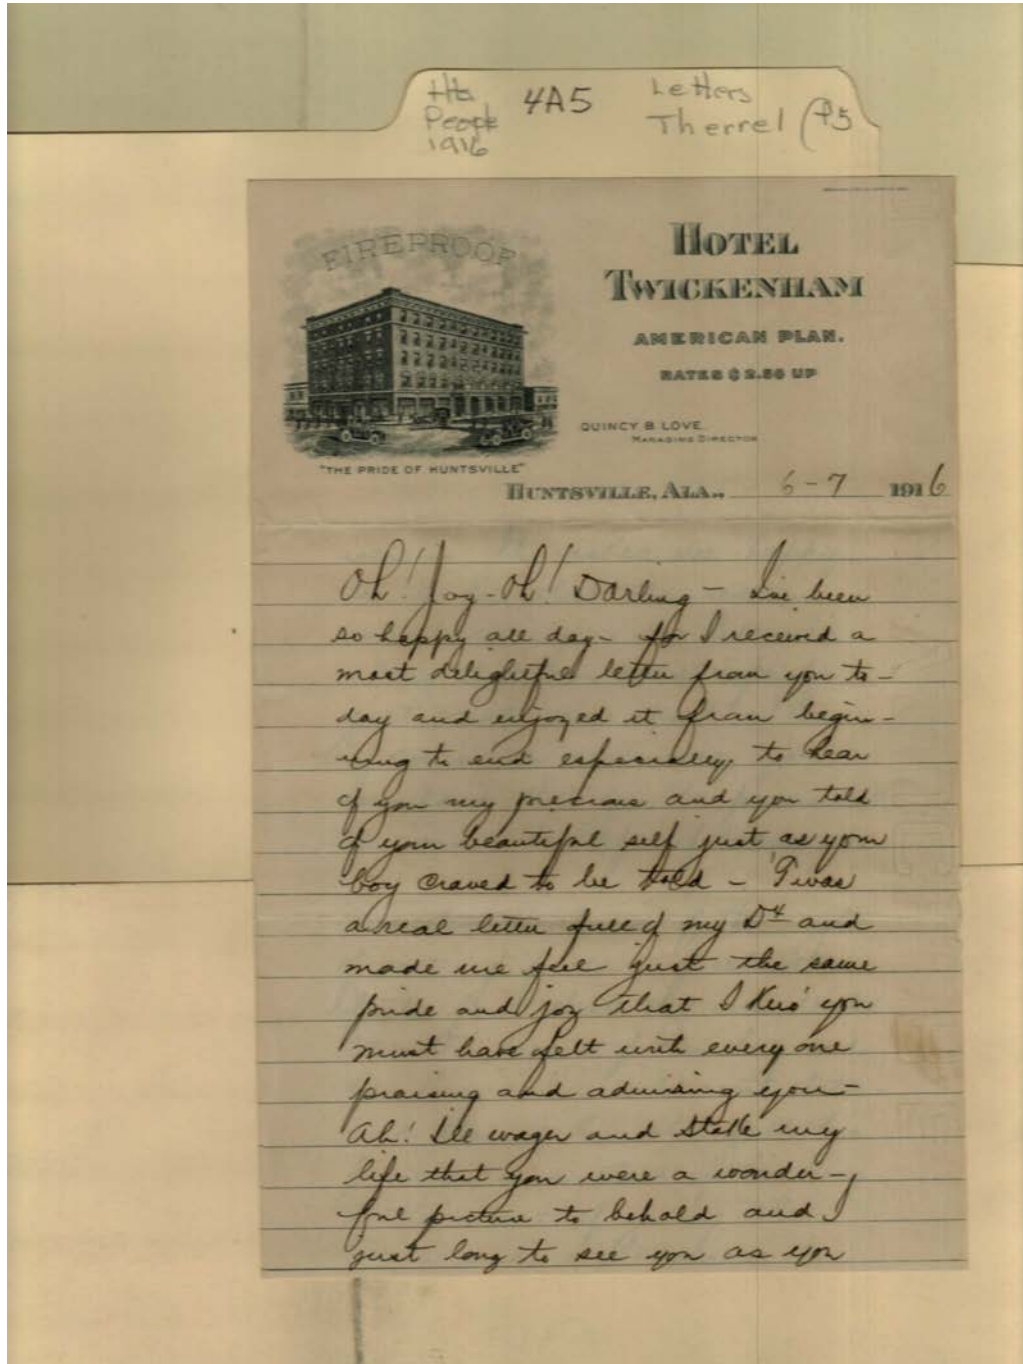 Hts
People
1916
4A5
Letters
Therrel (P5
FIREPROOF
HOTEL
TWICKENHAM
AMERICAN PLAN.
RATES $2.50 UP
QUINCY B. LOVE.
MANAGING DIRECTOR
"THE PRIDE OF HUNTSVILLE"
HUNTSVILLE, ALA., 6-7 1916
Oh! Joy-Oh! Darling - I've been
so happy all day - for I received a
most delightful letter from you to-
day and enjoyed it from begin-
ning to end especially, to hear
of you my precious and you told
of your beautiful self just as your
boy craved to be told - 'Twas
a real letter full of my D4 and
made me feel just the same
pride and joy that I kno' you
must have felt with every one
praising and admiring you-
Ah! I'll wager and stake my
life that you were a wonder-
ful picture to behold and I
just long to see you as you